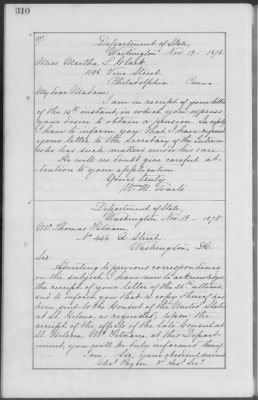 310
Department of State,
Washington Nov. 19 - 1878.
Miss Martha L. Clark
1106 Vine Street
Philadelphia Penna
My dear Madam:
I am in receipt of your letter
of the 14th instant, in which you express
your desire to obtain a pension. In reply
I have to inform you that I have referred
your letter to the Secretary of the Interior
who has such matters under his care.
He will no doubt give careful at-
tention to your application
Yours truly
Wm. M. Evarts
Department of State,
Washington, Nov. 19 - 1878
Mr. Thomas
No 446. Street
Washington, D.C.
Sir:
to previous correspondence
on the subject, I have now to acknowledge
the receipt of your letter of the ultimo,
and to inform you that a copy thereof has
been sent to the Consul of the United States
at St. Helena, as requested; upon the
receipt of the effects of the late Consul at
St. Helena, Mr. at this Depart-
ment, you will be duly informed thereof.
I am, Sir, your obedient servant